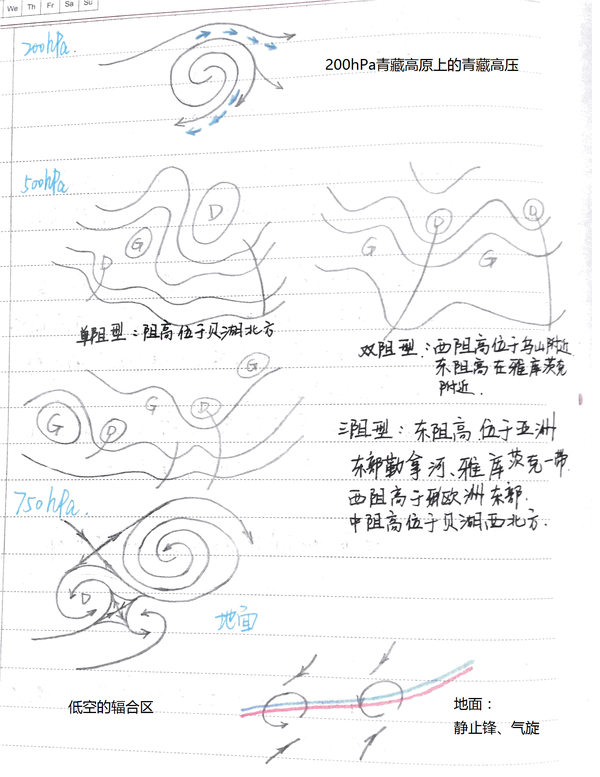 We Th Fr Sa Su
200hPa.
200hPa青藏高原上的青藏高压
500hPa
D
G
D
D
D
G
G
单阻型：阻高位于贝湖北方
双阻型：西阻高位于乌山附近
东阻高在雅库茨克
附近.
G
G
G
D
D
三阻型：东阻高位于亚洲
东部勒拿河、雅库茨克一带
西阻高于 欧洲东部.
中阻高位于贝湖西北方.
750hPa.
D
地面
低空的辐合区
地面：
静止锋、气旋